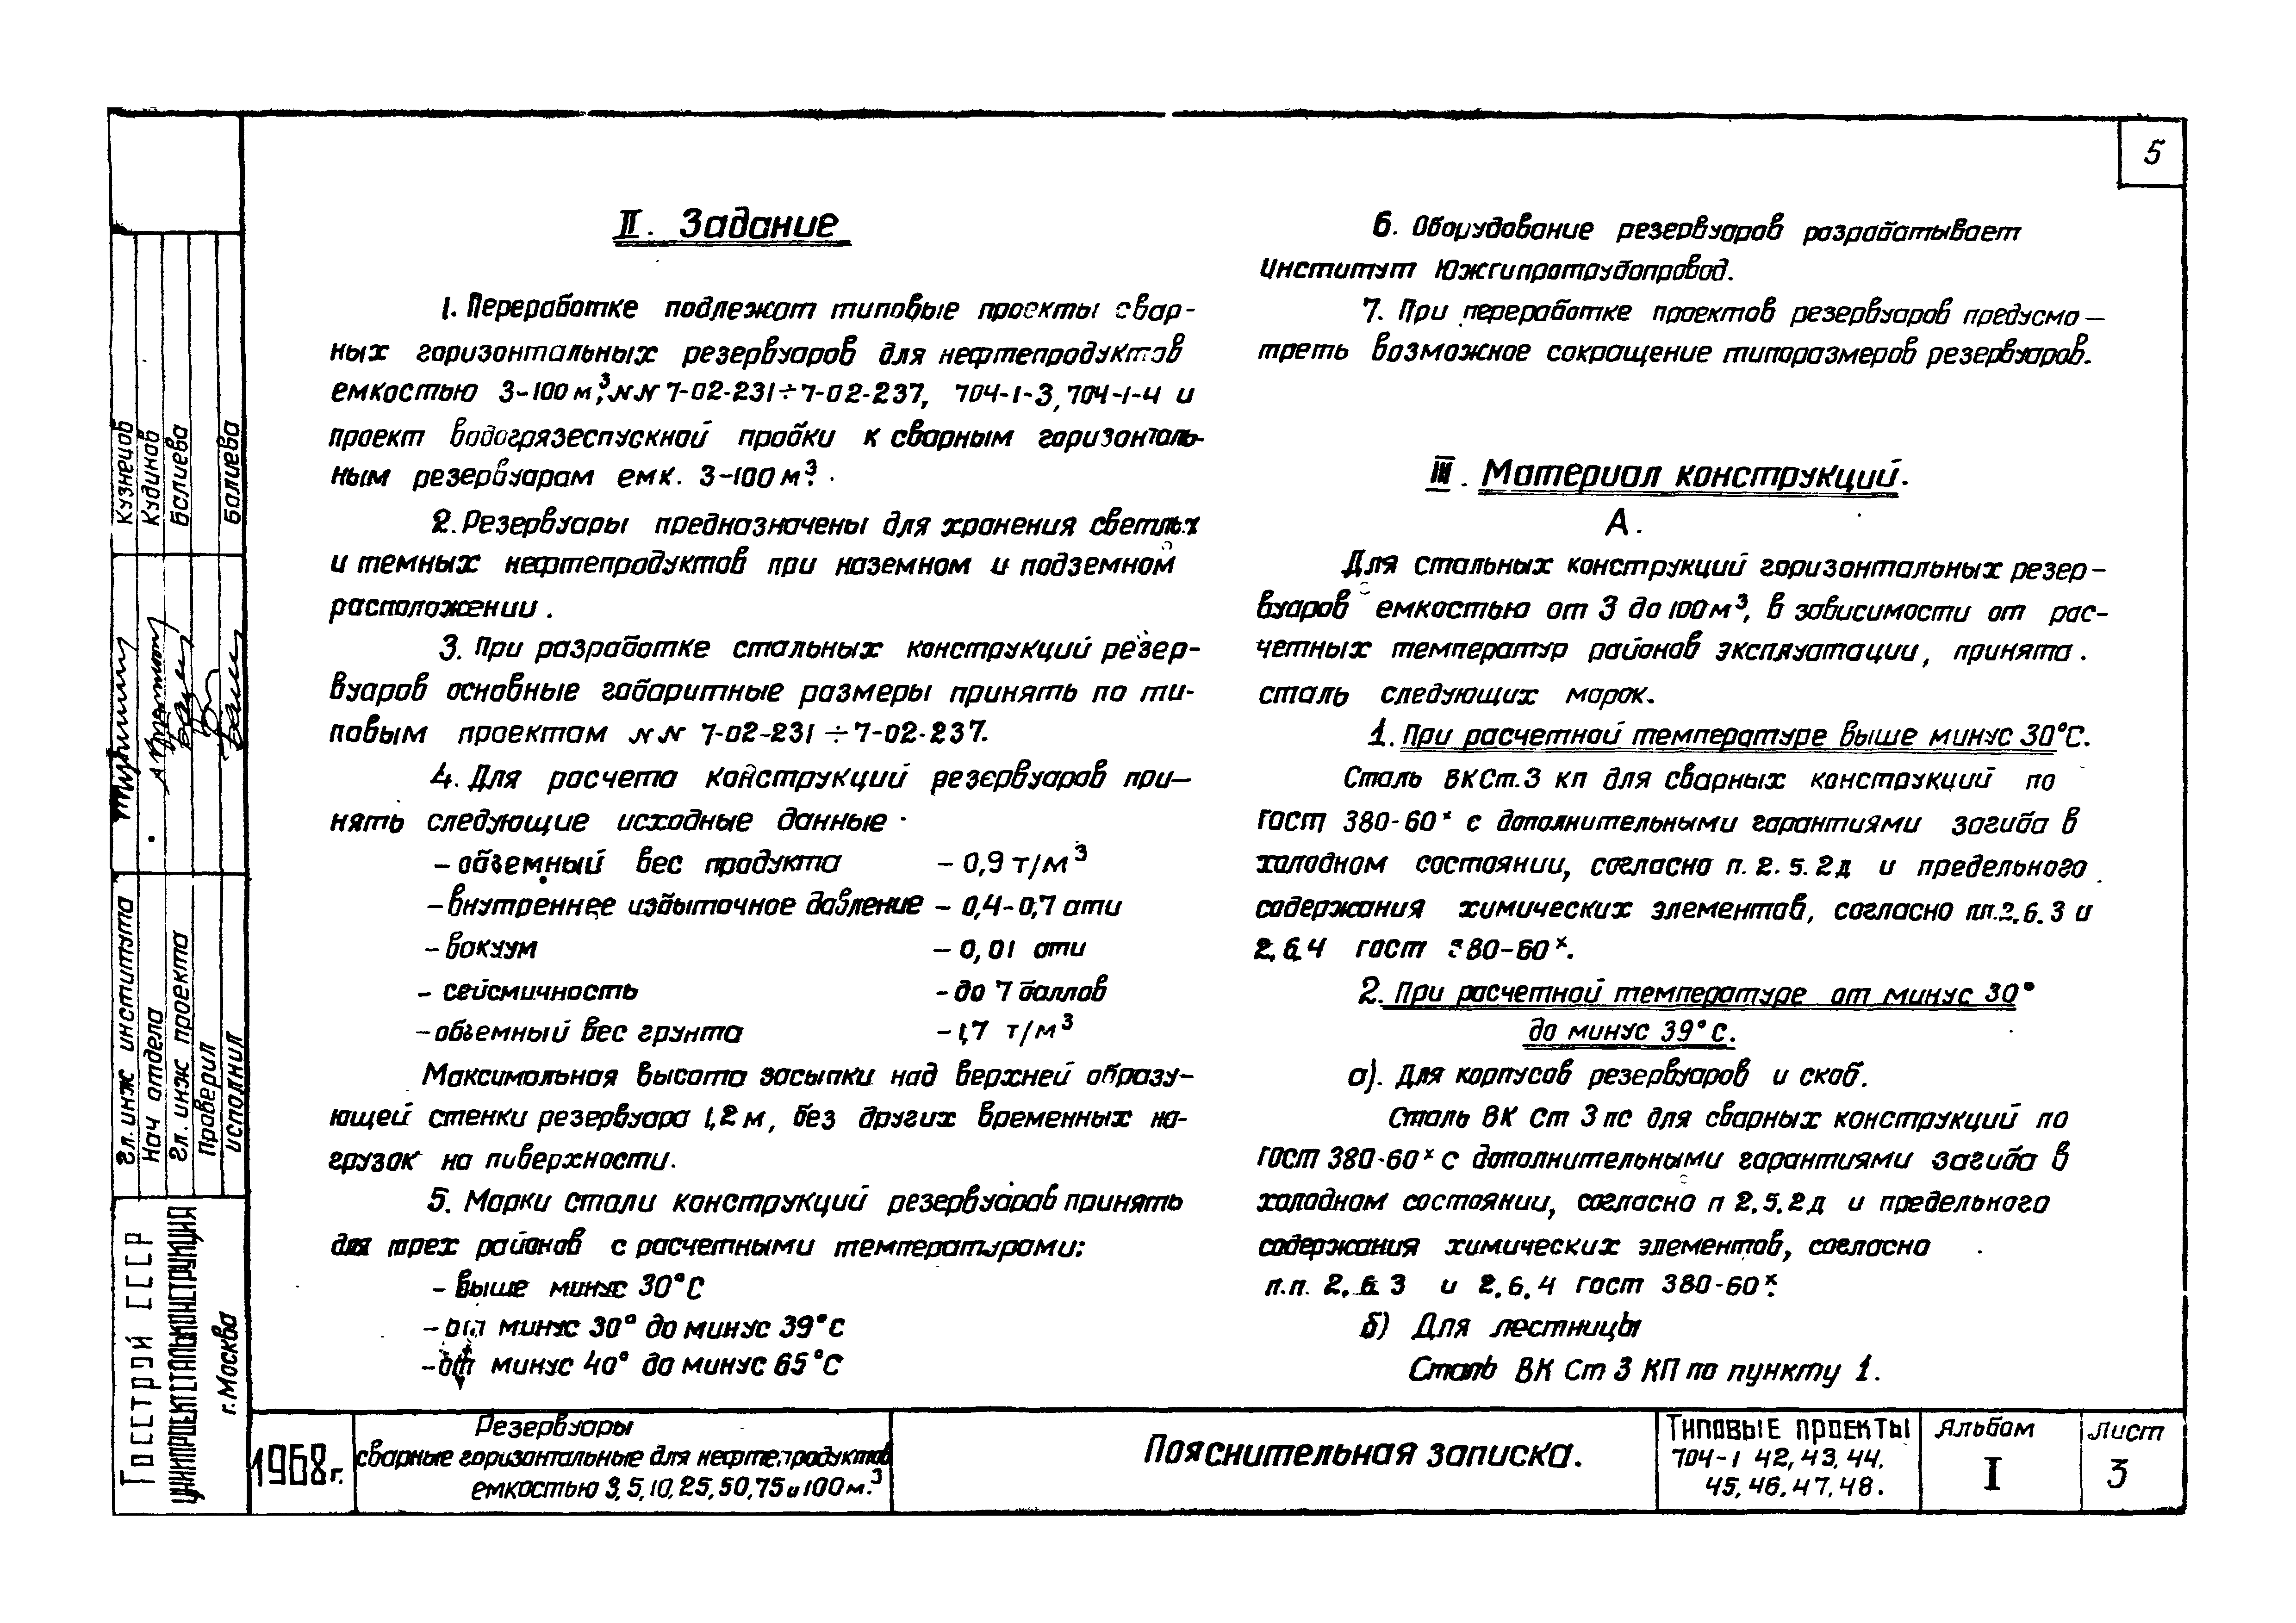 5
II. Задание
1. Переработке подлежат типовые проекты свар-
ных горизонтальных резервуаров для нефтепродуктов
емкостью 3-100 м³, NN 7-02-231÷7-02-237, 704-1-3, 704-1-4 и
проект водогрязеспускной пробки к сварным горизонталь-
ным резервуарам емк. 3-100 м³.
2. Резервуары предназначены для хранения светлых
и темных нефтепродуктов при наземном и подземном
расположении.
3. При разработке стальных конструкций резер-
вуаров основные габаритные размеры принять по ти-
повым проектам NN 7-02-231÷7-02-237.
4. Для расчета конструкций резервуаров при-
нять следующие исходные данные.
- объемный вес продукта - 0,9 т/м³
- внутреннее избыточное давление - 0,4-0,7 ати
- вакуум - 0,01 ати
- сейсмичность - до 7 баллов
- объемный вес грунта - 1,7 т/м³
Максимальная высота засыпки над верхней образу-
ющей стенки резервуара 1,2 м, без других временных на-
грузок на поверхности.
5. Марки стали конструкций резервуаров принять
для трех районов с расчетными температурами:
- выше минус 30°С
- от минус 30° до минус 39°С
- от минус 40° до минус 65°С
6. Оборудование резервуаров разрабатывает
институт Южгипротрубопровод.
7. При переработке проектов резервуаров предусмо-
треть возможное сокращение типоразмеров резервуаров.
III. Материал конструкций.
А.
Для стальных конструкций горизонтальных резер-
вуаров емкостью от 3 до 100 м³, в зависимости от рас-
четных температур районов эксплуатации, принята
сталь следующих марок.
1. При расчетной температуре выше минус 30°С.
Сталь ВКСт.3 кп для сварных конструкций по
ГОСТ 380-60ˣ с дополнительными гарантиями загиба в
холодном состоянии, согласно п. 2.5.2д и предельного
содержания химических элементов, согласно пп.2.6.3 и
2.6.4 ГОСТ 380-60ˣ.
2. При расчетной температуре от минус 30°
до минус 39°С.
а). Для корпусов резервуаров и скоб.
Сталь ВК Ст 3 пс для сварных конструкций по
ГОСТ 380-60ˣ с дополнительными гарантиями загиба в
холодном состоянии, согласно п 2.5.2д и предельного
содержания химических элементов, согласно
п.п. 2.6.3 и 2.6.4 ГОСТ 380-60ˣ.
б) Для лестницы
Сталь ВК Ст 3 КП по пункту 1.
Гл. инж института Кузнецов
Нач отдела Кудинов
Гл. инж проекта
Проверил
исполнил Балиева
Госстрой СССР
ЦНИИПРОЕКТСТАЛЬКОНСТРУКЦИЯ
г. Москва
1968 г.
Резервуары
сварные горизонтальные для нефтепродуктов
емкостью 3, 5, 10, 25, 50, 75 и 100 м.³
Пояснительная записка.
Типовые проекты
704-1 42, 43, 44,
45, 46, 47, 48.
Альбом
I
Лист
3